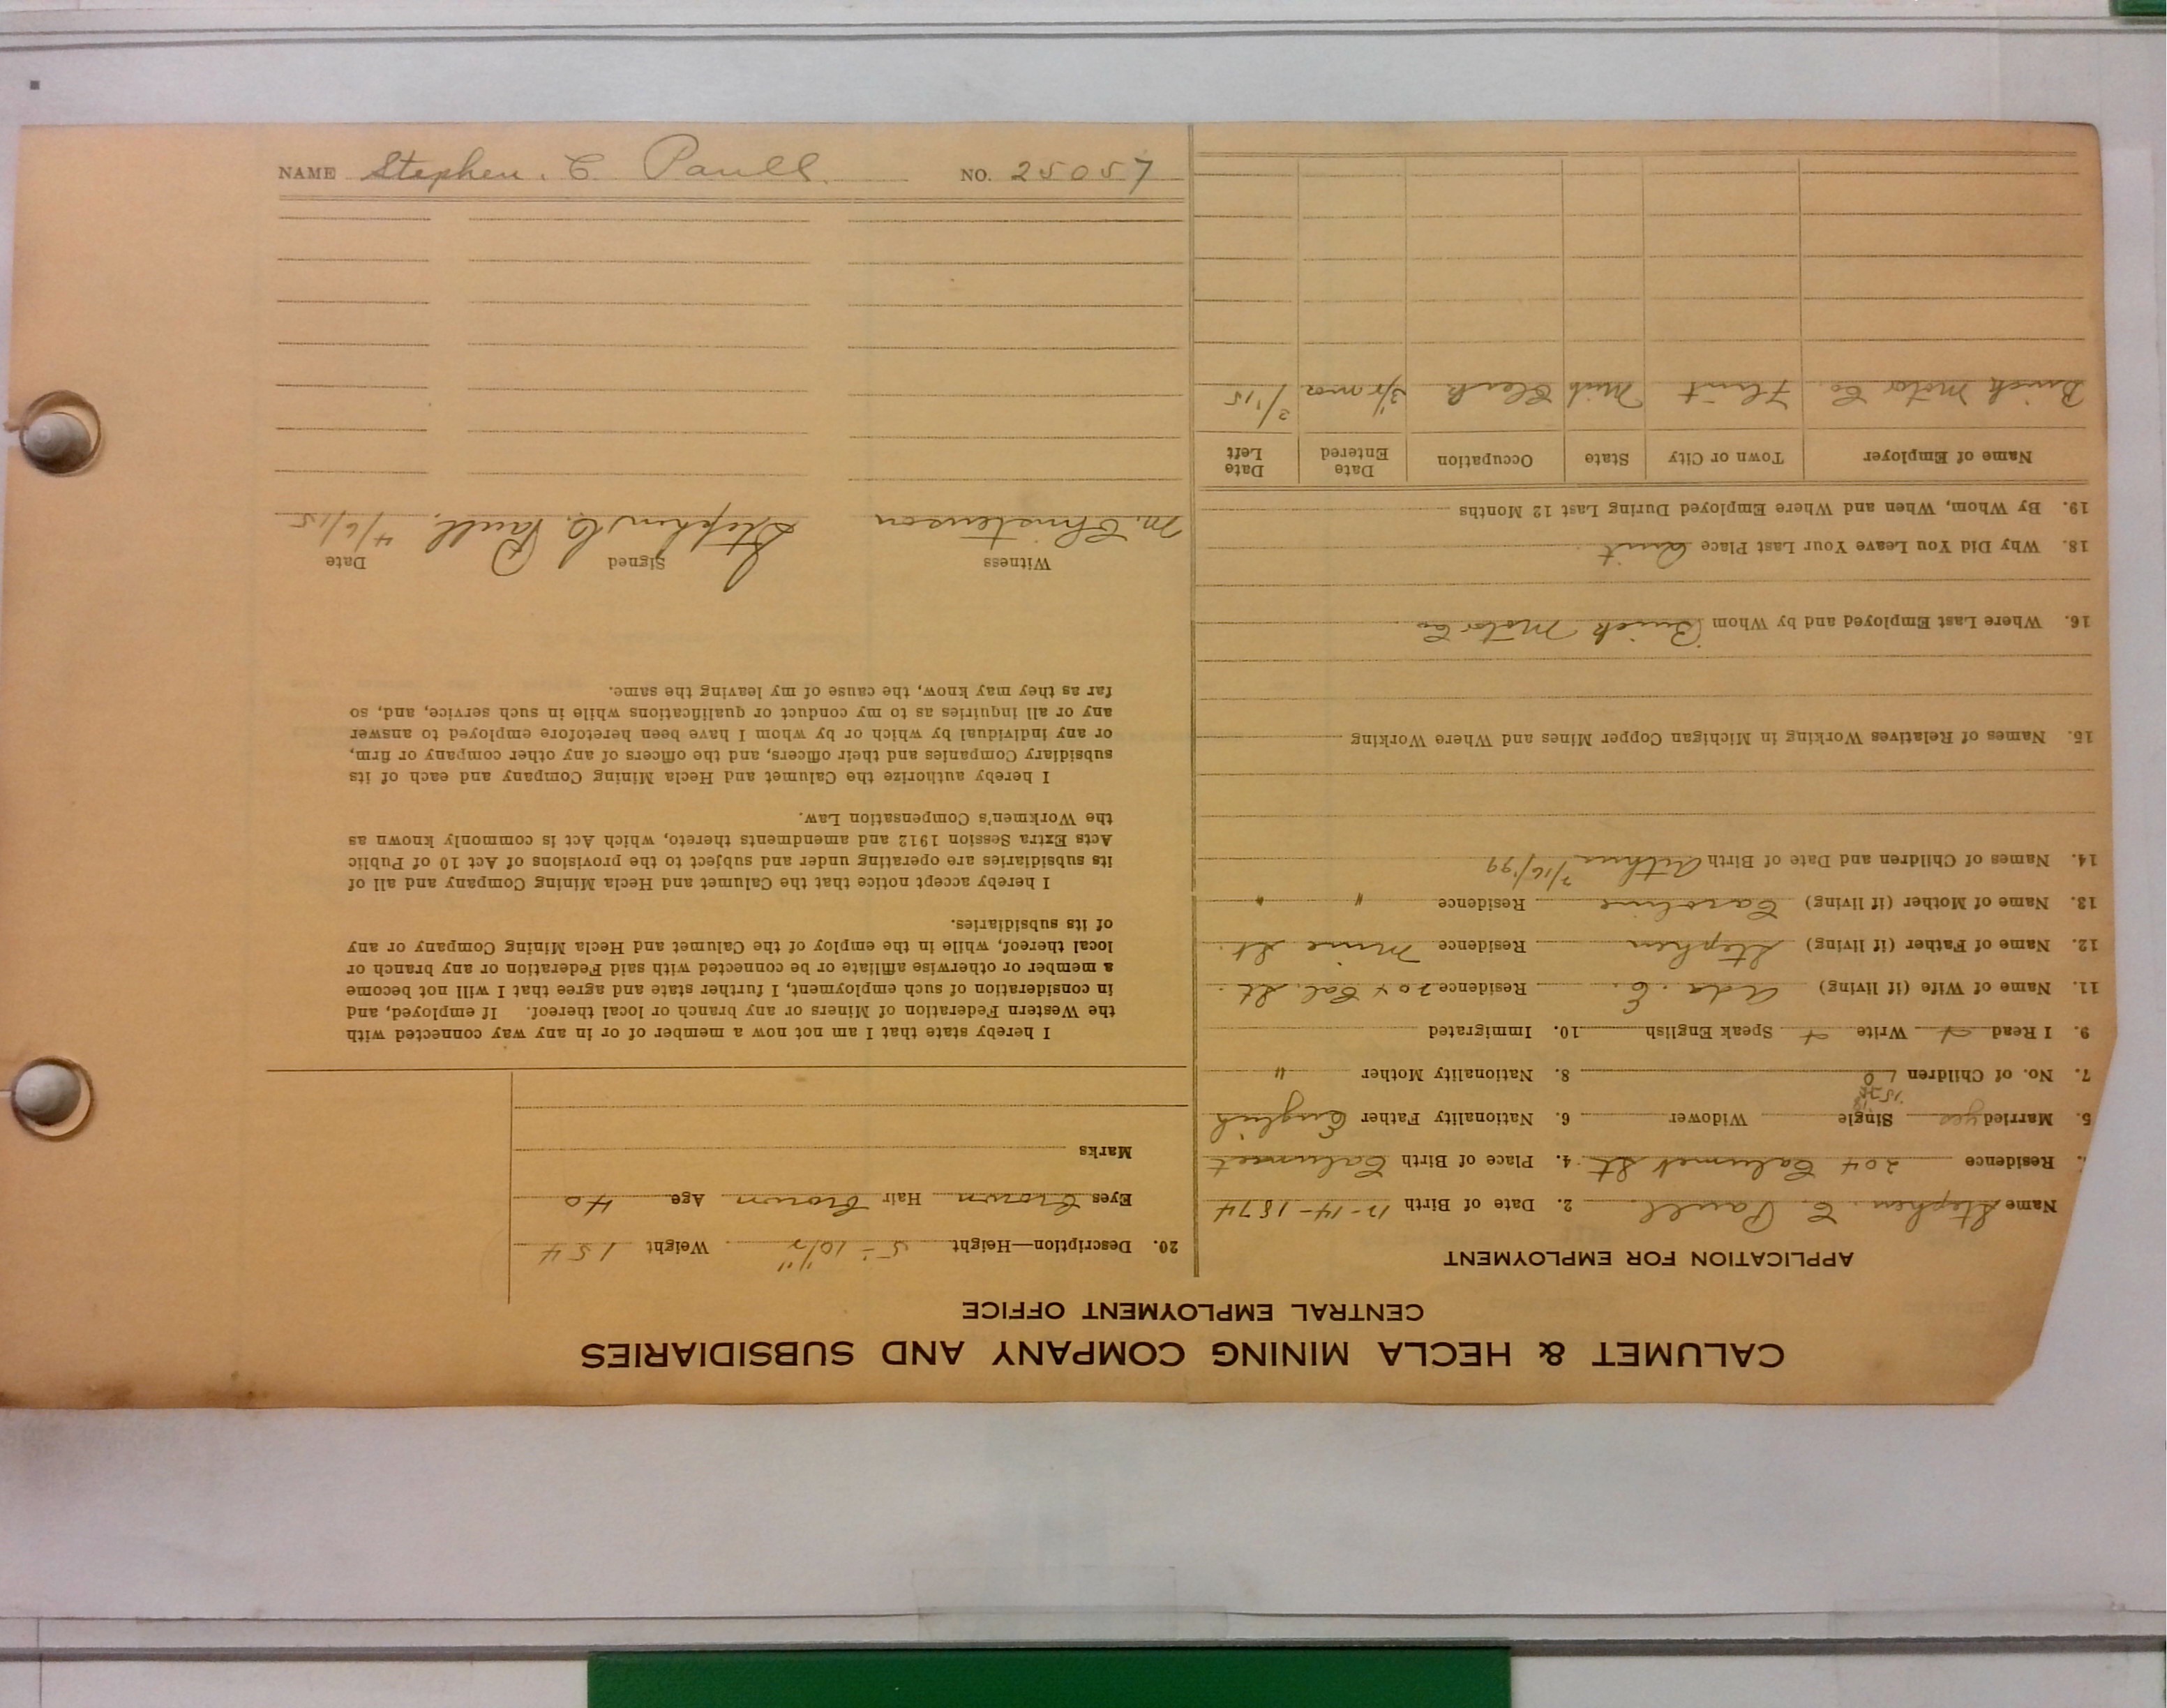 CALUMET & HECLA MINING COMPANY AND SUBSIDIARIES
CENTRAL EMPLOYMENT OFFICE
APPLICATION FOR EMPLOYMENT
Name Stephen. C. Paull. 2. Date of Birth 12-14-1874
Residence 204 Calumet St. 4. Place of Birth Calumet
5. Married yes Single Widower 6. Nationality Father English
7. No. of Children 8. Nationality Mother "
9. I Read Write Speak English 10. Immigrated
11. Name of Wife (if living) Ada. C. Residence 204 Cal. St.
12. Name of Father (if living) Stephen Residence Mine St.
13. Name of Mother (if living) Caroline Residence " "
14. Names of Children and Date of Birth Arthur 7/16/99
15. Names of Relatives Working in Michigan Copper Mines and Where Working
16. Where Last Employed and by Whom Buick Motor Co.
18. Why Did You Leave Your Last Place Quit
19. By Whom, When and Where Employed During Last 12 Months
Name of Employer Town or City State Occupation Date Entered Date Left
Buick Motor Co. Flint Mich Clerk 3/1/15
20. Description—Height 5-10½" Weight 154
Eyes brown Hair brown Age 40
Marks
I hereby state that I am not now a member of or in any way connected with
the Western Federation of Miners or any branch or local thereof. If employed, and
in consideration of such employment, I further state and agree that I will not become
a member or otherwise affiliate or be connected with said Federation or any branch or
local thereof, while in the employ of the Calumet and Hecla Mining Company or any
of its subsidiaries.
I hereby accept notice that the Calumet and Hecla Mining Company and all of
its subsidiaries are operating under and subject to the provisions of Act 10 of Public
Acts Extra Session 1912 and amendments thereto, which Act is commonly known as
the Workmen's Compensation Law.
I hereby authorize the Calumet and Hecla Mining Company and each of its
subsidiary Companies and their officers, and the officers of any other company or firm,
or any individual by which or by whom I have been heretofore employed to answer
any or all inquiries as to my conduct or qualifications while in such service, and, so
far as they may know, the cause of my leaving the same.
Witness Signed Date
M. Christenson Stephen C. Paull. 4/6/15
NAME Stephen. C. Paull. NO. 25057